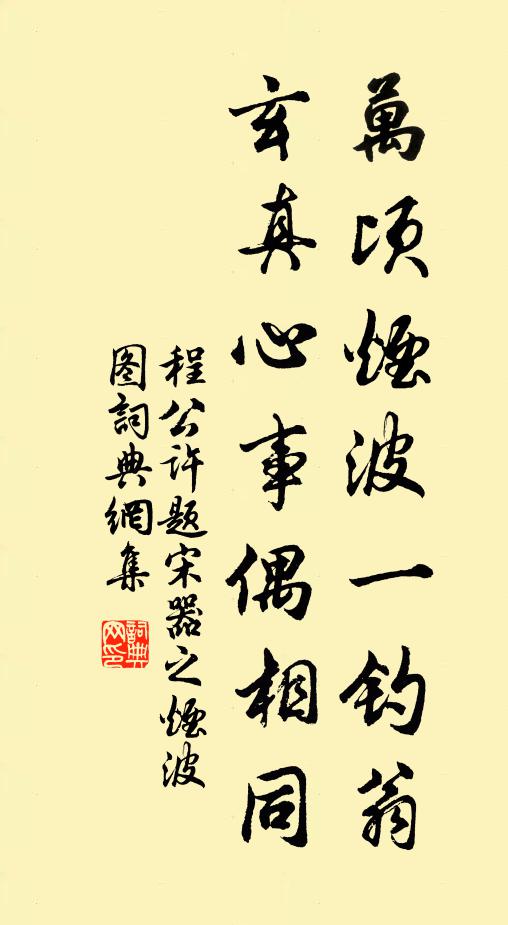 萬頃煙波一釣翁
玄真心事偶相同
程公許題宋器之煙波
图詞典網集
詞典
网印